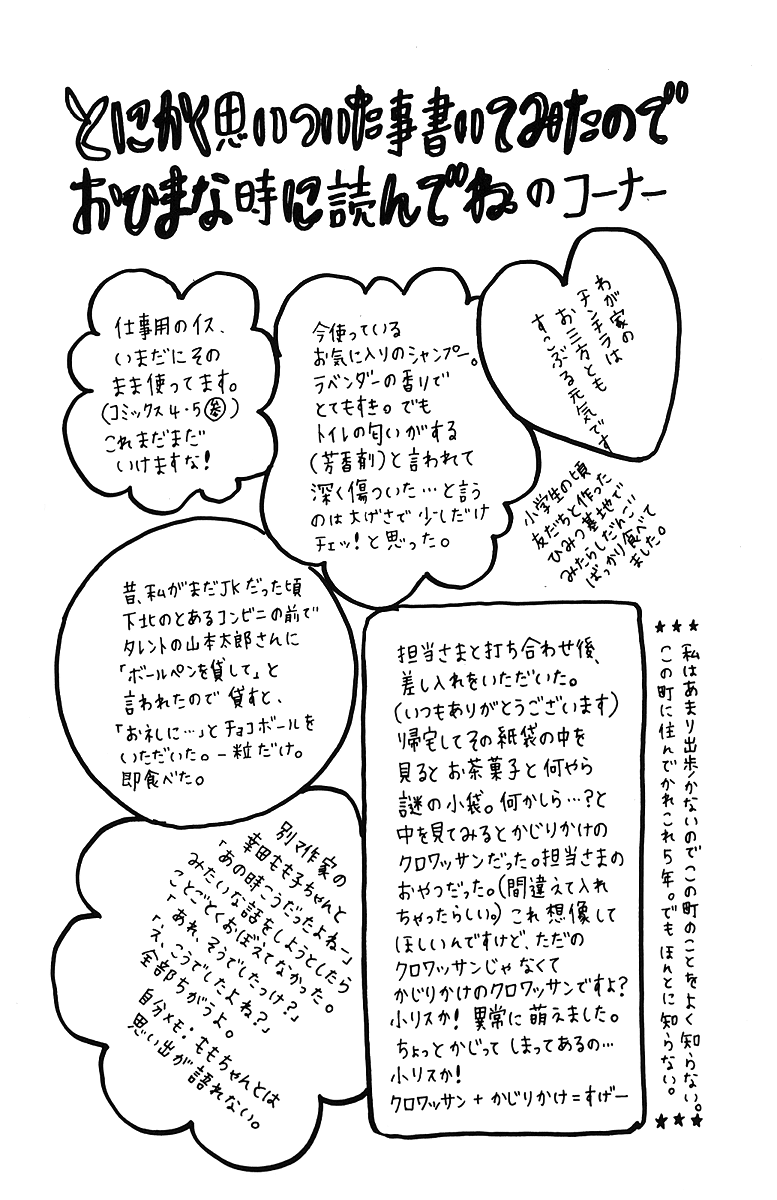 とにかく思いついた事書いてみたので
おひまな時に読んでね。のコーナー
わが家の
チンチラは
お三方とも
すこぶる元気です
今使っている
お気に入りのシャンプー。
ラベンダーの香りで
とてもすき。でも
トイレの匂いがする
(芳香剤)と言われて
深く傷ついた…と言う
のは大げさで少しだけ
チェッ!と思った。
仕事用のイス、
いまだにその
まま使ってます。
(コミックス4・5参)
これまだまだ
いけますな!
小学生の頃
友だちと作った
ひみつ基地で
みたらしだんご
ばっかり食べて
ました。
昔、私がまだJKだった頃
下北のとあるコンビニの前で
タレントの山本太郎さんに
「ボールペンを貸して」と
言われたので貸すと、
「お礼に…」とチョコボールを
いただいた。一粒だけ。
即食べた。
担当さまと打ち合わせ後、
差し入れをいただいた。
(いつもありがとうございます)
帰宅してその紙袋の中を
見るとお茶菓子と何やら
謎の小袋。何かしら…?と
中を見てみるとかじりかけの
クロワッサンだった。担当さまの
おやつだった。(間違えて入れ
ちゃったらしい。)これ想像して
ほしいんですけど、ただの
クロワッサンじゃなくて
かじりかけのクロワッサンですよ?
小リスか!異常に萌えました。
ちょっとかじってしまってあるの…
小リスか!
クロワッサン+かじりかけ=すげー
★★★
私はあまり出歩かないのでこの町のことをよく知らない。
この町に住んでかれこれ5年。でもほんとに知らない。
★★★
別マ作家の
幸田もも子ちゃんと
「あの時こうだったよねー」
みたいな話をしようとしたら
ことごとくおぼえてなかった。
「あれ、そうでしたっけ?」
「え、こうでしたよね?」
全部ちがうよ。
自分メモ・ももちゃんとは
思い出が語れない。